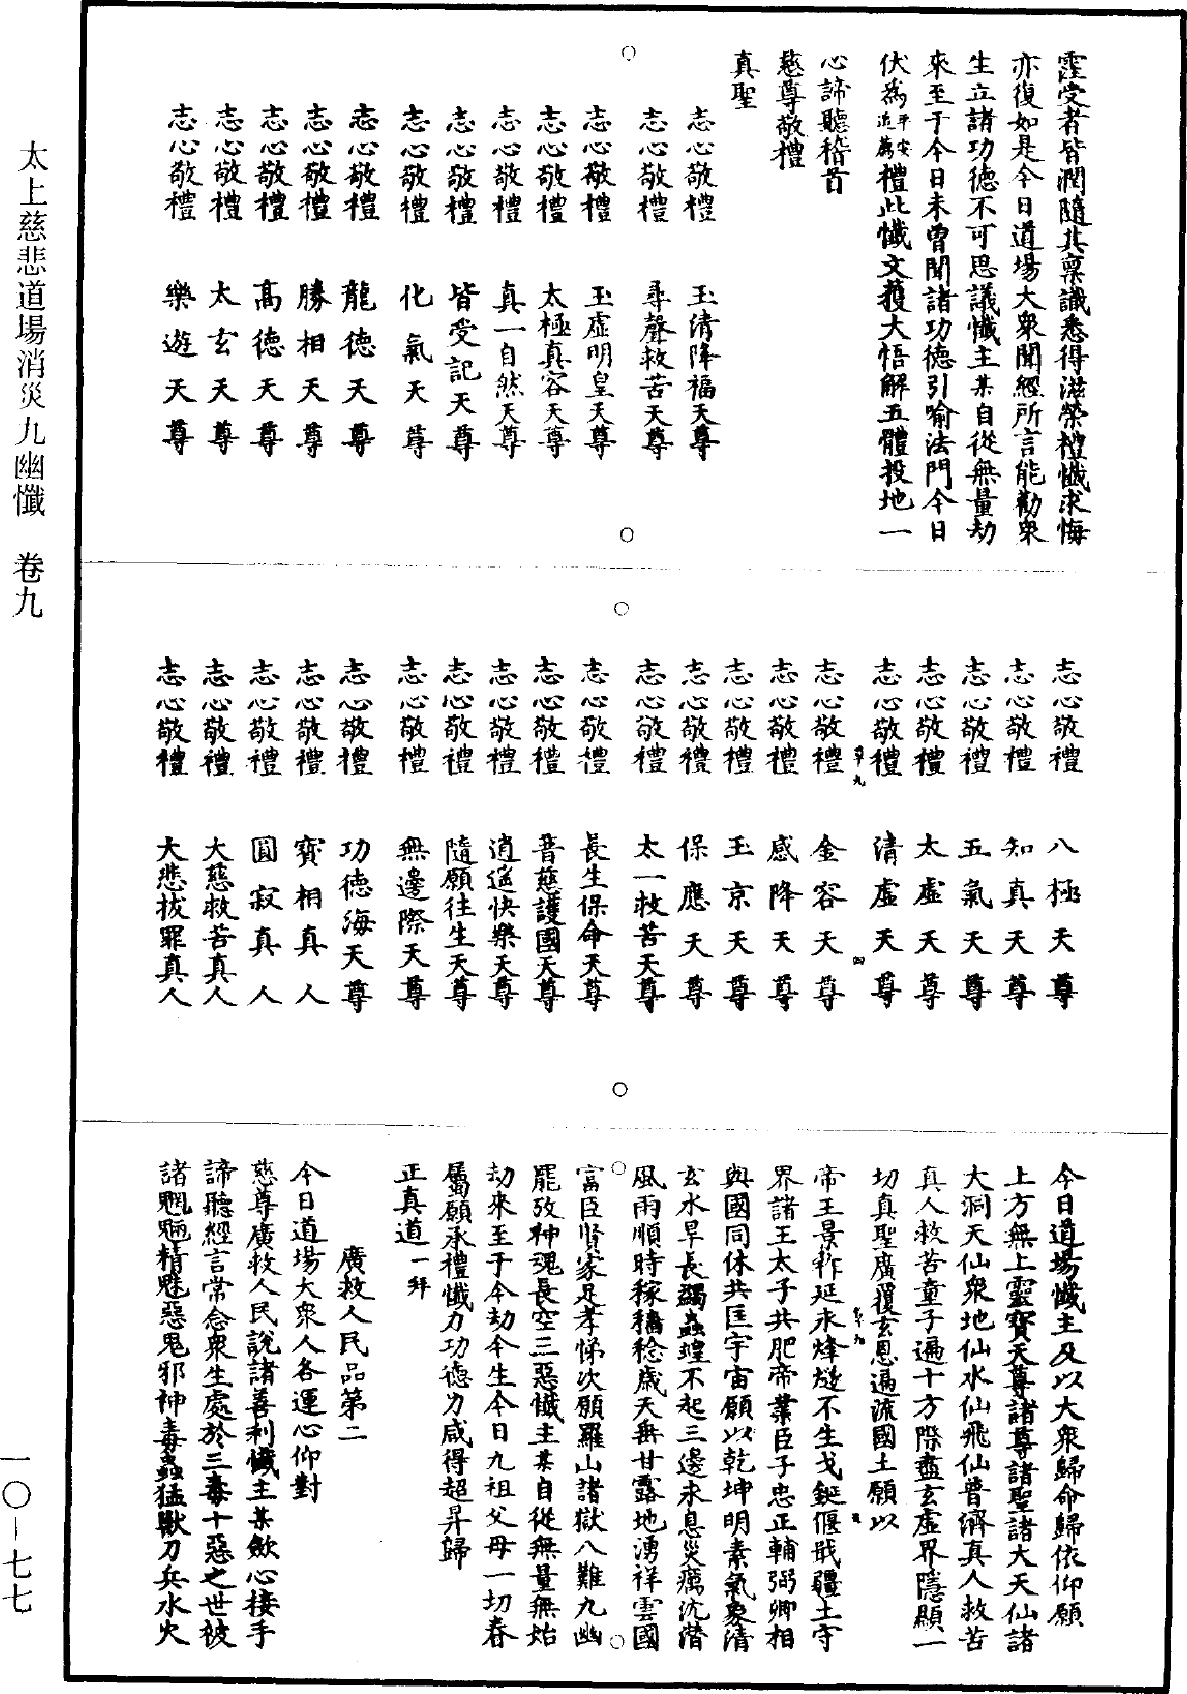 霑受者皆潤隨其禀識悉得滋榮禮懺求悔
亦復如是今日道場大衆聞經所言能勸衆
生立諸功德不可思議懺主某自從無量劫
來至于今日未曾聞諸功德引喻法門今日
伏為平安追薦禮此懺文獲大悟解五體投地一
心諦聽稽首
慈尊敬禮
真聖
志心敬禮 玉清降福天尊
志心敬禮 尋聲救苦天尊
志心敬禮 玉虛明皇天尊
志心敬禮 太極真容天尊
志心敬禮 真一自然天尊
志心敬禮 皆受記天尊
志心敬禮 化氣天尊
志心敬禮 龍德天尊
志心敬禮 勝相天尊
志心敬禮 高德天尊
志心敬禮 太玄天尊
志心敬禮 樂遊天尊
志心敬禮 八極天尊
志心敬禮 知真天尊
志心敬禮 五氣天尊
志心敬禮 太虛天尊
志心敬禮 清虛天尊
志心敬禮 金容天尊
志心敬禮 感降天尊
志心敬禮 玉京天尊
志心敬禮 保應天尊
志心敬禮 太一救苦天尊
志心敬禮 長生保命天尊
志心敬禮 普慈護國天尊
志心敬禮 逍遥快樂天尊
志心敬禮 隨願往生天尊
志心敬禮 無邊際天尊
志心敬禮 功德海天尊
志心敬禮 寶相真人
志心敬禮 圓寂真人
志心敬禮 大慈救苦真人
志心敬禮 大悲拔罪真人
今日道場懺主及以大衆歸命歸依仰願
上方無上靈寶天尊諸尊諸聖諸大天仙諸
大洞天仙衆地仙水仙飛仙普濟真人救苦
真人救苦童子遍十方際盡玄虛界隱顯一
切真聖廣覆玄恩遍流國土願以
帝王景祚延永烽燧不生戈鋋偃戢疆土守
界諸王太子共肥帝業臣子忠正輔弼卿相
與國同休共匡宇宙願以乾坤明素氣象清
玄水旱長蠲蟲蝗不起三邊永息災癘沉潜
風雨順時稼穡稔歲天無甘露地湧祥雲國
富臣賢家足孝悌次願羅山諸獄八難九幽
罷攷神魂長空三惡懺主某自從無量無始
劫來至于今劫今生今日九祖父母一切眷
屬願承禮懺力功德力咸得超昇歸
正真道一拜
廣救人民品第二
今日道場大衆人各運心仰對
慈尊廣救人民說諸善利懺主某歛心接手
諦聽經言常念衆生處於三毒十惡之世被
諸魍魎精魅惡鬼邪神毒蟲猛獸刀兵水火
太上慈悲道場消災九幽懺 卷九
一〇-七七